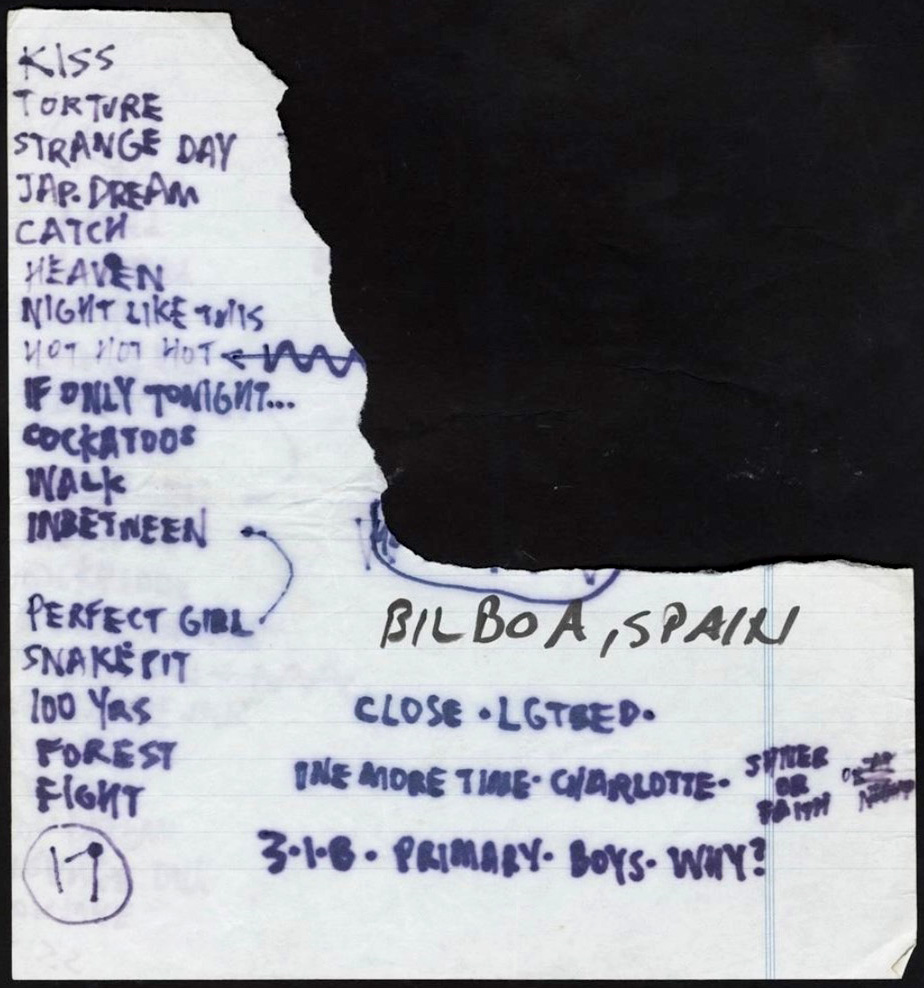 KISS
TORTURE
STRANGE DAY
JAP. DREAM
CATCH
HEAVEN
NIGHT LIKE THIS
HOT HOT HOT
IF ONLY TONIGHT...
COCKATOOS
WALK
INBETWEEN
PERFECT GIRL
SNAKEPIT
100 YRS
FOREST
FIGHT
17
BILBOA, SPAIN
CLOSE · LGTBED ·
ONE MORE TIME · CHARLOTTE ·
OR
FAITH
3·1·B · PRIMARY · BOYS · WHY?